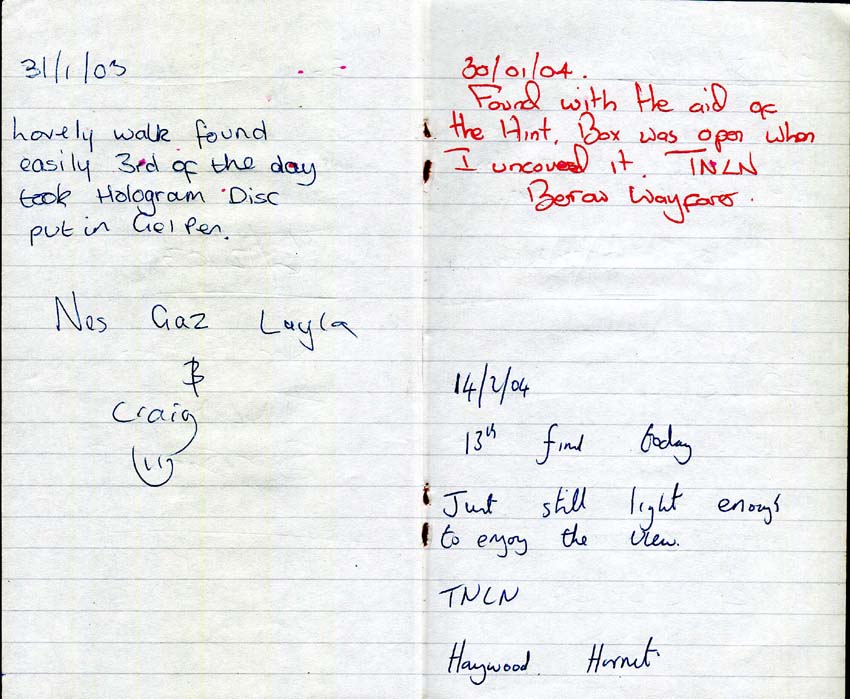 31/1/03
Lovely walk found
easily 3rd of the day
took Hologram Disc
put in Gel Pen.
Nes Gaz Layla
&
Craig
30/01/04.
Found with the aid of
the Hint. Box was open when
I uncoved it. TNLN
Berow Wayfarer.
14/2/04
13th find today
Just still light enough
to enjoy the view.
TNLN
Haywood Hornet.